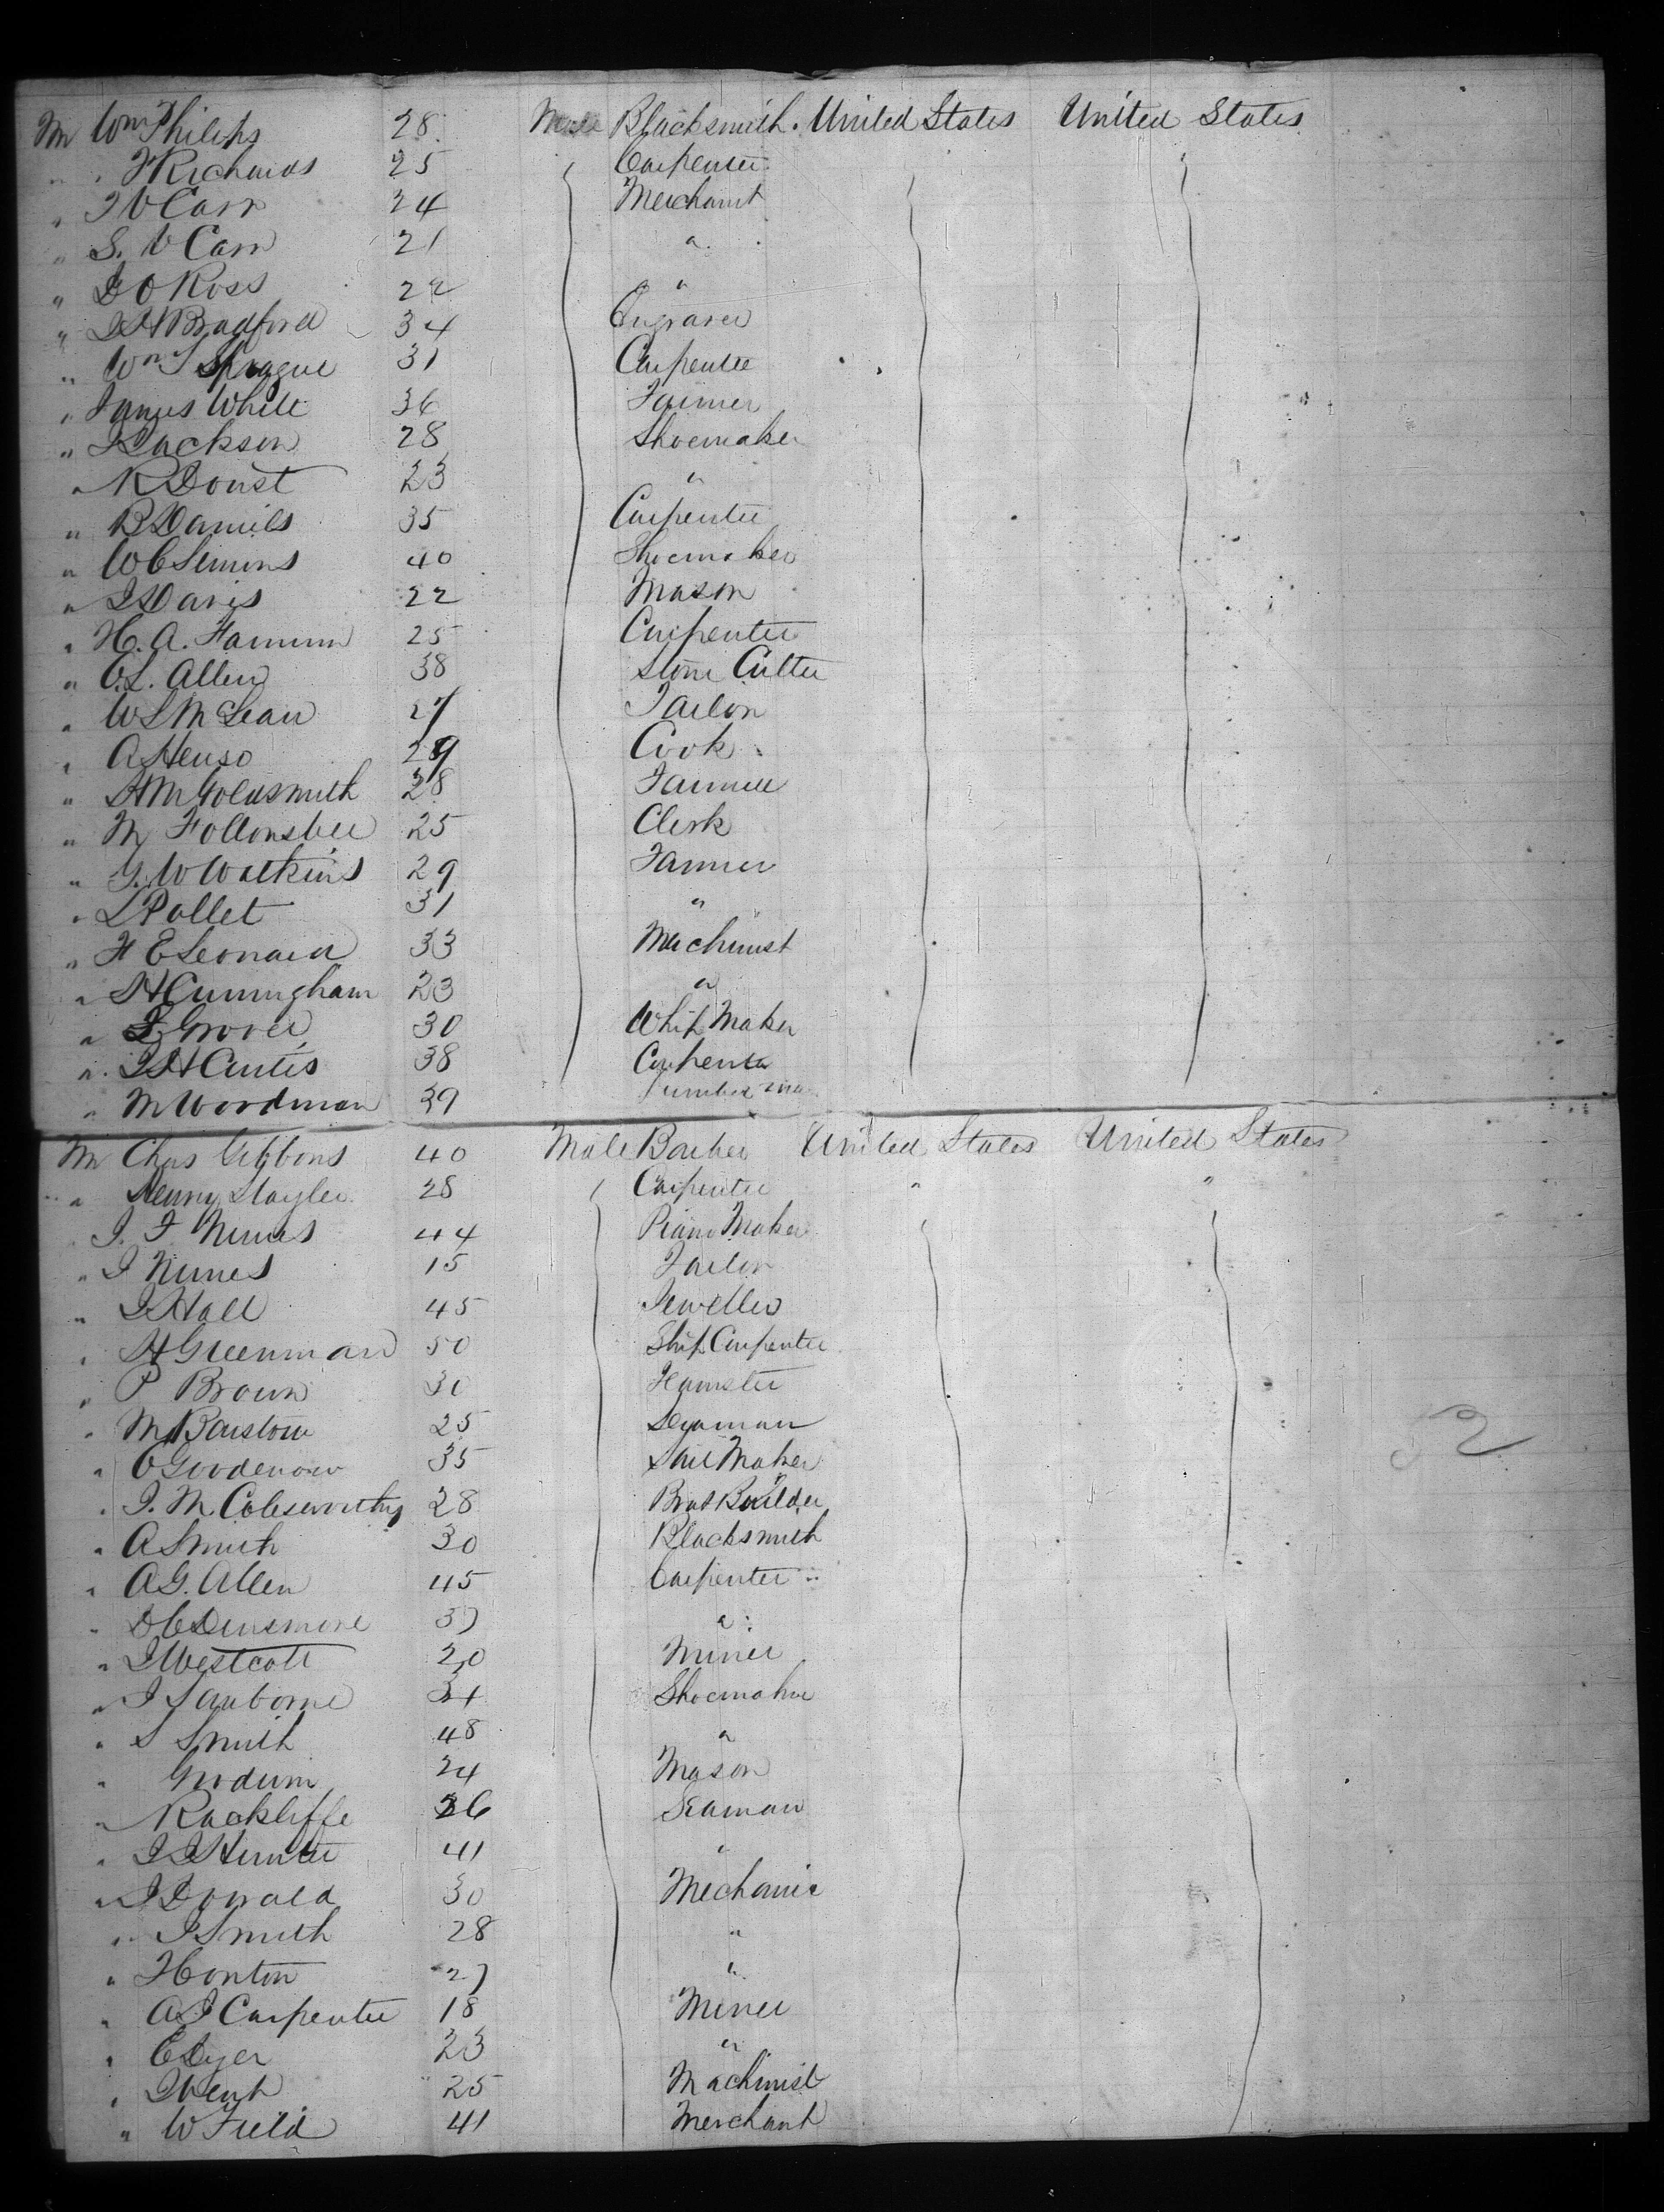 Mr Wm Philips 28 Male Blacksmith. United States United States
" " F Richards 25 Carpenter
" J V Carr 24 Merchant
" S. V Carr 21 "
" D O Ross 22 "
" J H Bradford 34 Engraver
" Wm S Sprague 31 Carpenter
" James White 36 Farmer
" Jackson 28 Shoemaker
" R Doust 23 "
" B Daniels 35 Carpenter
" W C Simons 40 Shoemaker
" J Davis 22 Mason
" H. A. Farnum 25 Carpenter
" O. L. Allen 38 Stone Cutter
" W S McLean 27 Tailor
" A Henso 29 Cook
" H M Goldsmith 28 Farmer
" M Follonsbee 25 Clerk
" G. W Watkins 29 Farmer
" L Pollet 31 "
" H E Leonard 33 Machinist
" H Cuningham 23 "
" F Grover 30 Whip Maker
" J H Curtis 38 Carpenter
" M Woodman 39 Lumber man
Mr Chas Gibbons 40 Male Barber United States United States
" Henry Slayler 28 Carpenter " "
" J. F Nunes 44 Piano Maker
" J Nunes 15 Tailor
" J Hall 45 Jeweller
" H Greenman 50 Ship Carpenter
" P Brown 30 Teamster
" M Barstow 25 Seaman
" O Goodenow 35 Sail Maker
" J. M. Colesworthy 28 Boat Builder
" A Smith 30 Blacksmith
" A G. Allen 45 Carpenter
" D C Densmore 37 "
" J Westcott 20 Miner
" J Sanborne 34 Shoemaker
" S Smith 48 "
" Goodwin 24 Mason
" Rackliffe 36 Seaman
" J J Hunter 41 "
" J Donald 30 Mechanic
" J Smith 28 "
" Horton 27 "
" A J Carpenter 18 Miner
" E Dyer 23 "
" J Vent 25 Machinist
" W Field 41 Merchant
52